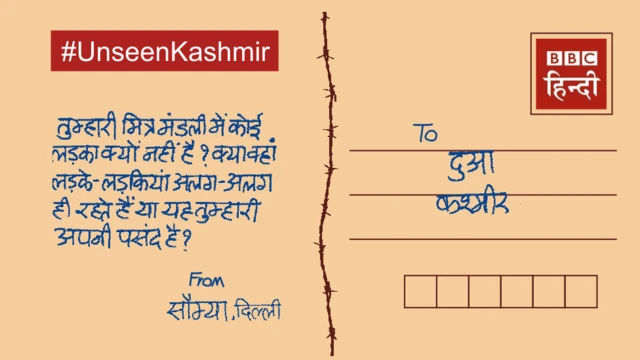 #UnseenKashmir
तुम्हारी मित्र मंडली में कोई
लड़का क्यों नहीं है? क्या वहां
लड़के-लड़कियां अलग-अलग
ही रहते हैं या यह तुम्हारी
अपनी पसंद है?
From
सौम्या, दिल्ली
BBC
हिन्दी
To
दुआ
कश्मीर